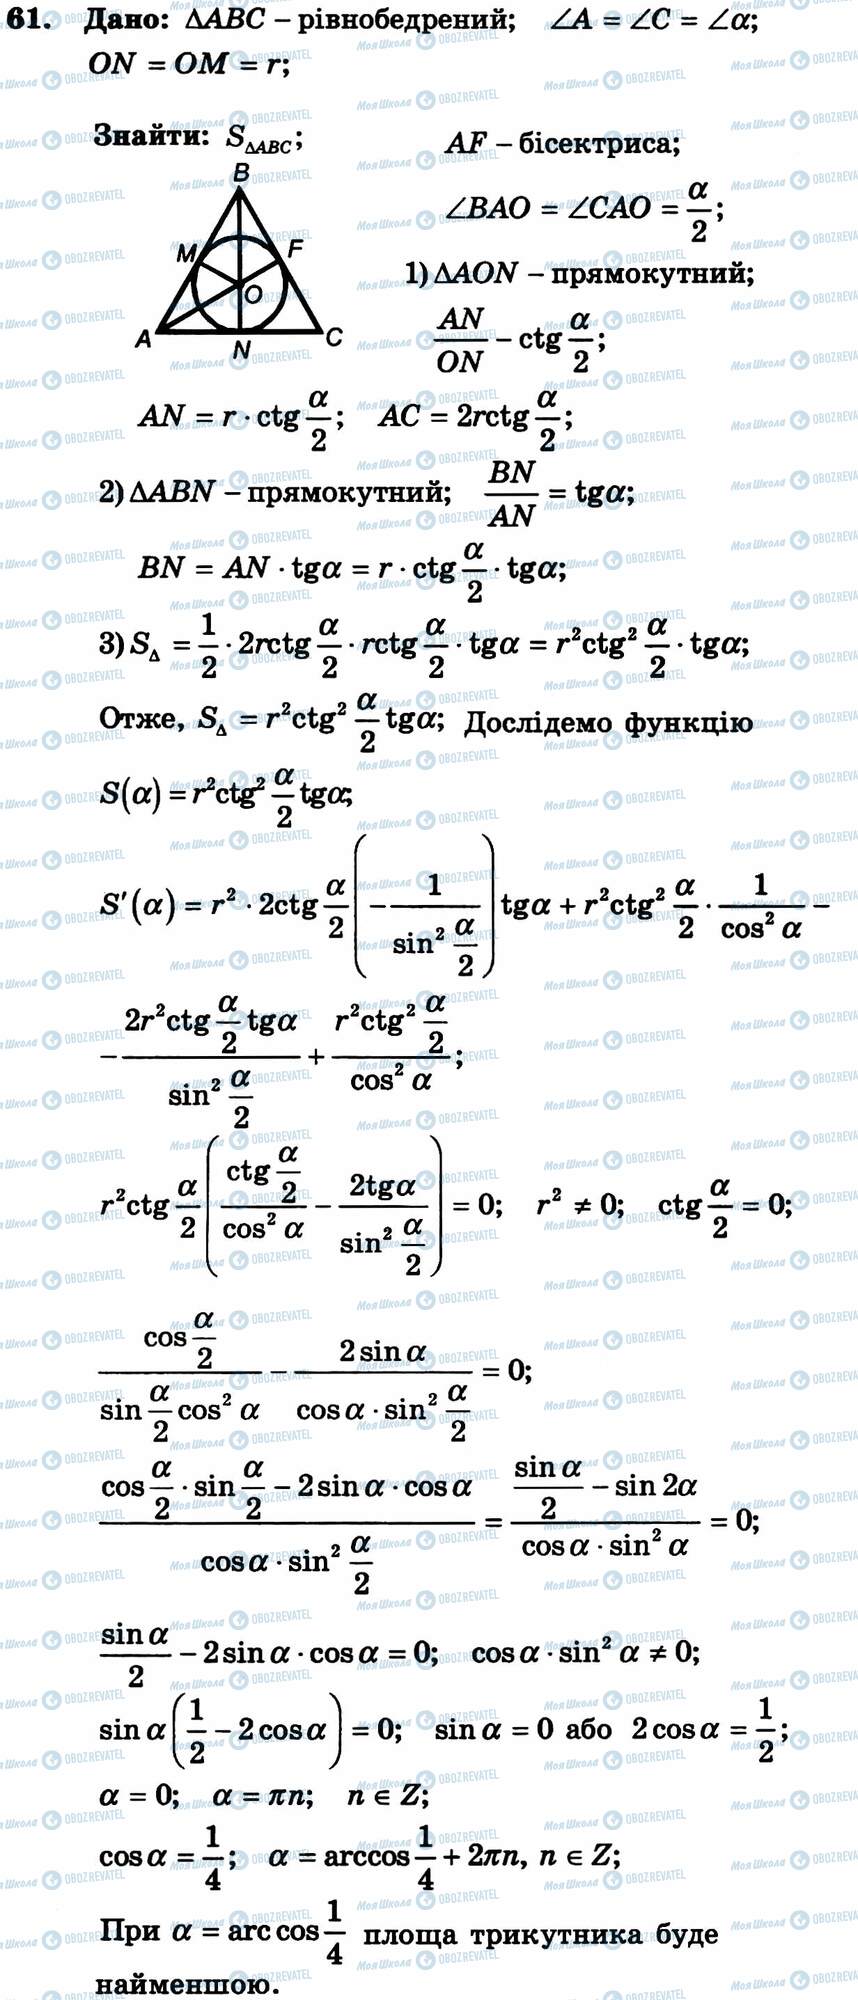 61. Дано: ΔABC – рівнобедрений; ∠A = ∠C = ∠α;
ON = OM = r;
Знайти: S_ΔABC;
AF – бісектриса;
∠BAO = ∠CAO = α/2;
1) ΔAON – прямокутний;
AN/ON – ctg α/2;
B
M F
O
A N C
AN = r · ctg α/2; AC = 2rctg α/2;
2) ΔABN – прямокутний; BN/AN = tgα;
BN = AN · tgα = r · ctg α/2 · tgα;
3) S_Δ = 1/2 · 2rctg α/2 · rctg α/2 · tgα = r²ctg² α/2 · tgα;
Отже, S_Δ = r²ctg² α/2 tgα; Дослідемо функцію
S(α) = r²ctg² α/2 tgα;
S′(α) = r² · 2ctg α/2 (– 1/(sin² α/2)) tgα + r²ctg² α/2 · 1/(cos² α) –
– (2r²ctg α/2 tgα)/(sin² α/2) + (r²ctg² α/2)/(cos² α);
r²ctg α/2 ((ctg α/2)/(cos² α) – (2tgα)/(sin² α/2)) = 0; r² ≠ 0; ctg α/2 = 0;
(cos α/2)/(sin α/2 cos² α) – (2 sin α)/(cos α · sin² α/2) = 0;
(cos α/2 · sin α/2 – 2 sin α · cos α)/(cos α · sin² α/2) = ((sin α)/2 – sin 2α)/(cos α · sin² α) = 0;
(sin α)/2 – 2 sin α · cos α = 0; cos α · sin² α ≠ 0;
sin α (1/2 – 2 cos α) = 0; sin α = 0 або 2 cos α = 1/2;
α = 0; α = πn; n ∈ Z;
cos α = 1/4; α = arccos 1/4 + 2πn, n ∈ Z;
При α = arc cos 1/4 площа трикутника буде
найменшою.
МояШкола OBOZREVATEL